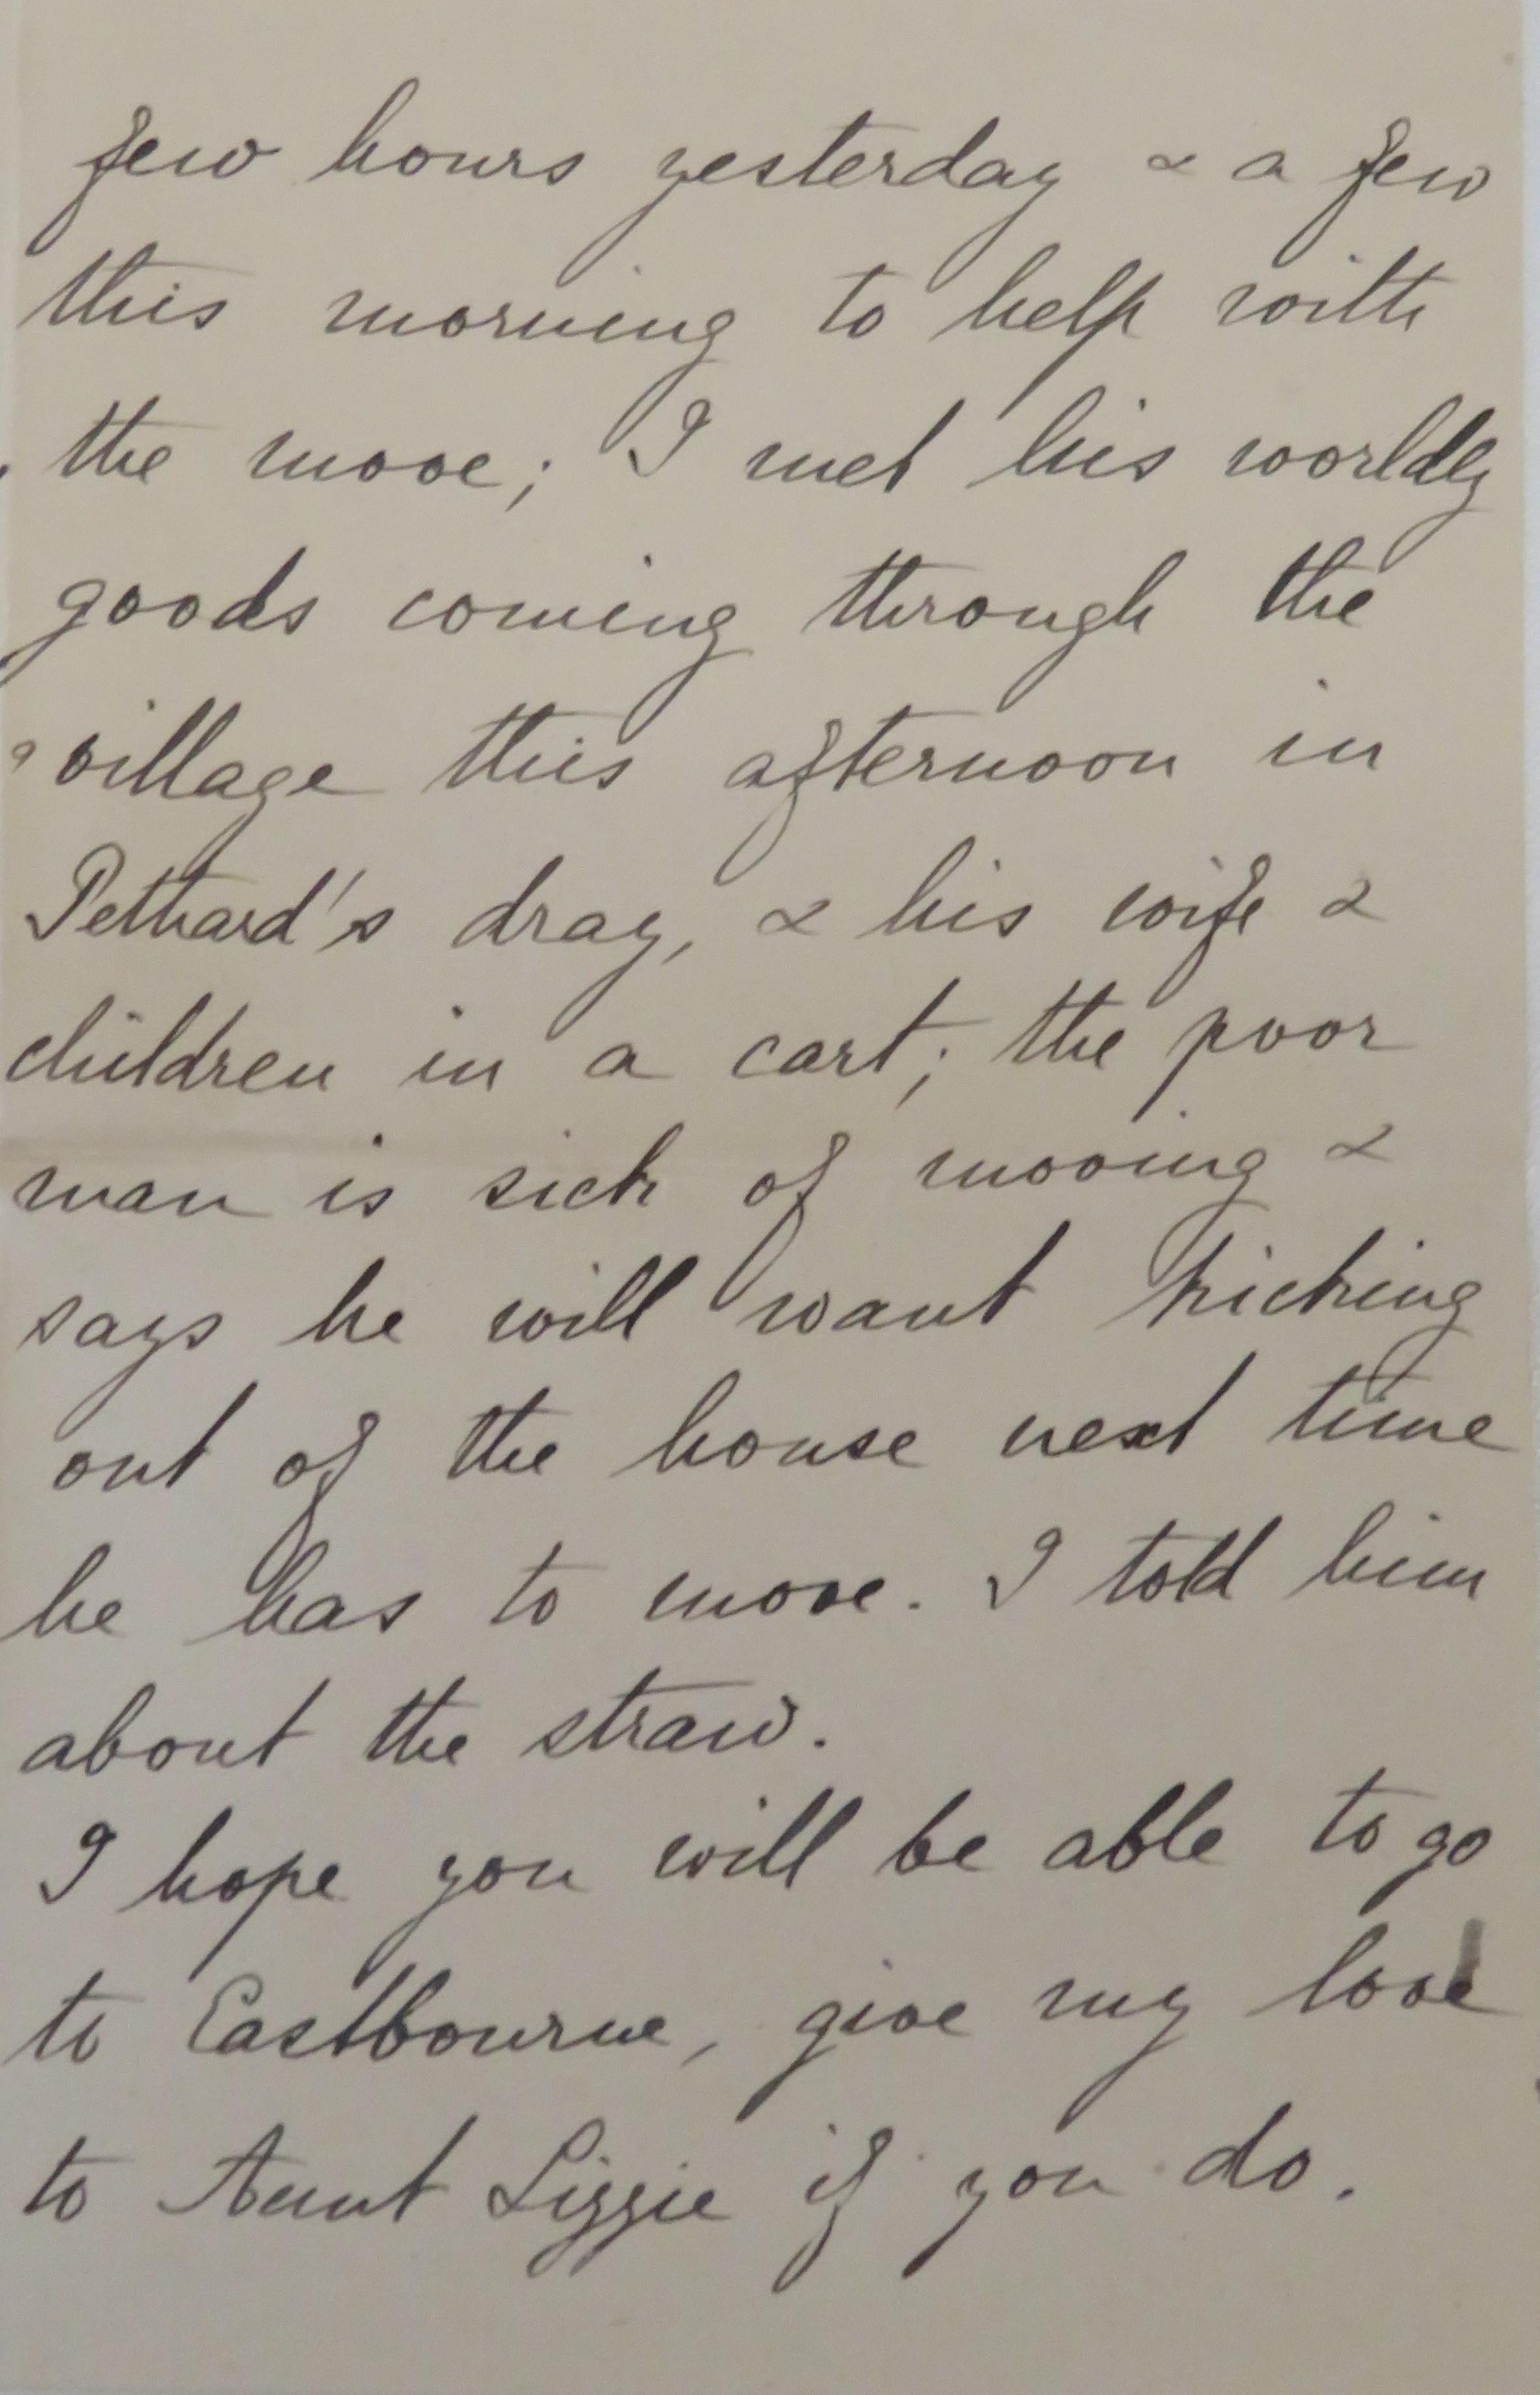 few hours yesterday & a few
this morning to help with
the move; I met his worldly
goods coming through the
village this afternoon in
Pethard's dray, & his wife &
children in a cart; the poor
man is sick of moving &
says he will want kicking
out of the house next time
he has to move. I told him
about the straw.
I hope you will be able to go
to Eastbourne, give my love
to Aunt Lizzie if you do.